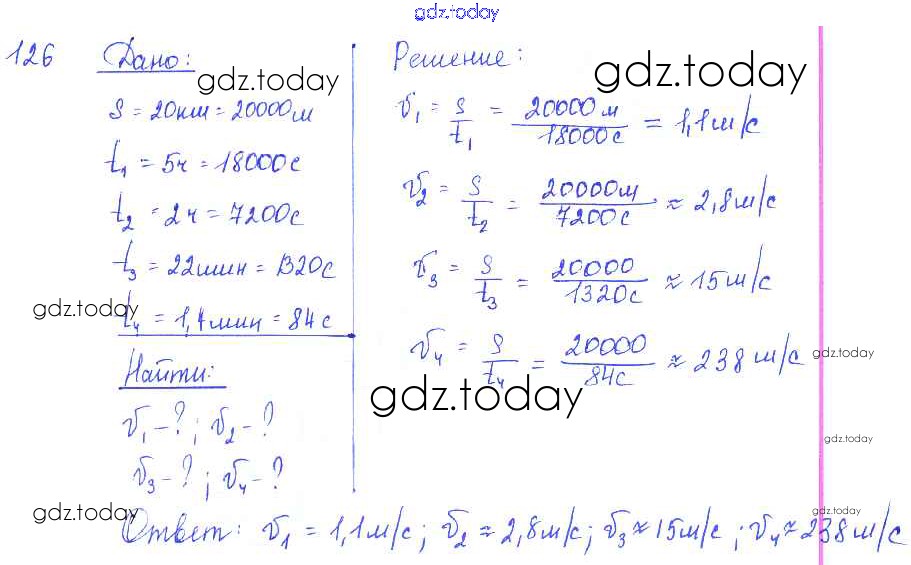 gdz.today
126 Дано:
gdz.today
S = 20км = 20000м
t₁ = 5ч = 18000с
t₂ = 2ч = 7200с
t₃ = 22мин = 1320с
gdz.today
t₄ = 1,4мин = 84с
Найти:
v₁ - ? ; v₂ - ?
v₃ - ? ; v₄ - ?
Решение:
gdz.today
v₁ = S/t₁ = 20000м/18000с = 1,1м/с
v₂ = S/t₂ = 20000м/7200с ≈ 2,8м/с
v₃ = S/t₃ = 20000/1320с ≈ 15м/с
v₄ = S/t₄ = 20000/84с ≈ 238м/с
gdz.today
gdz.today
gdz.today
gdz.today
gdz.today
Ответ: v₁ = 1,1м/с; v₂ ≈ 2,8м/с; v₃ ≈ 15м/с; v₄ ≈ 238м/с